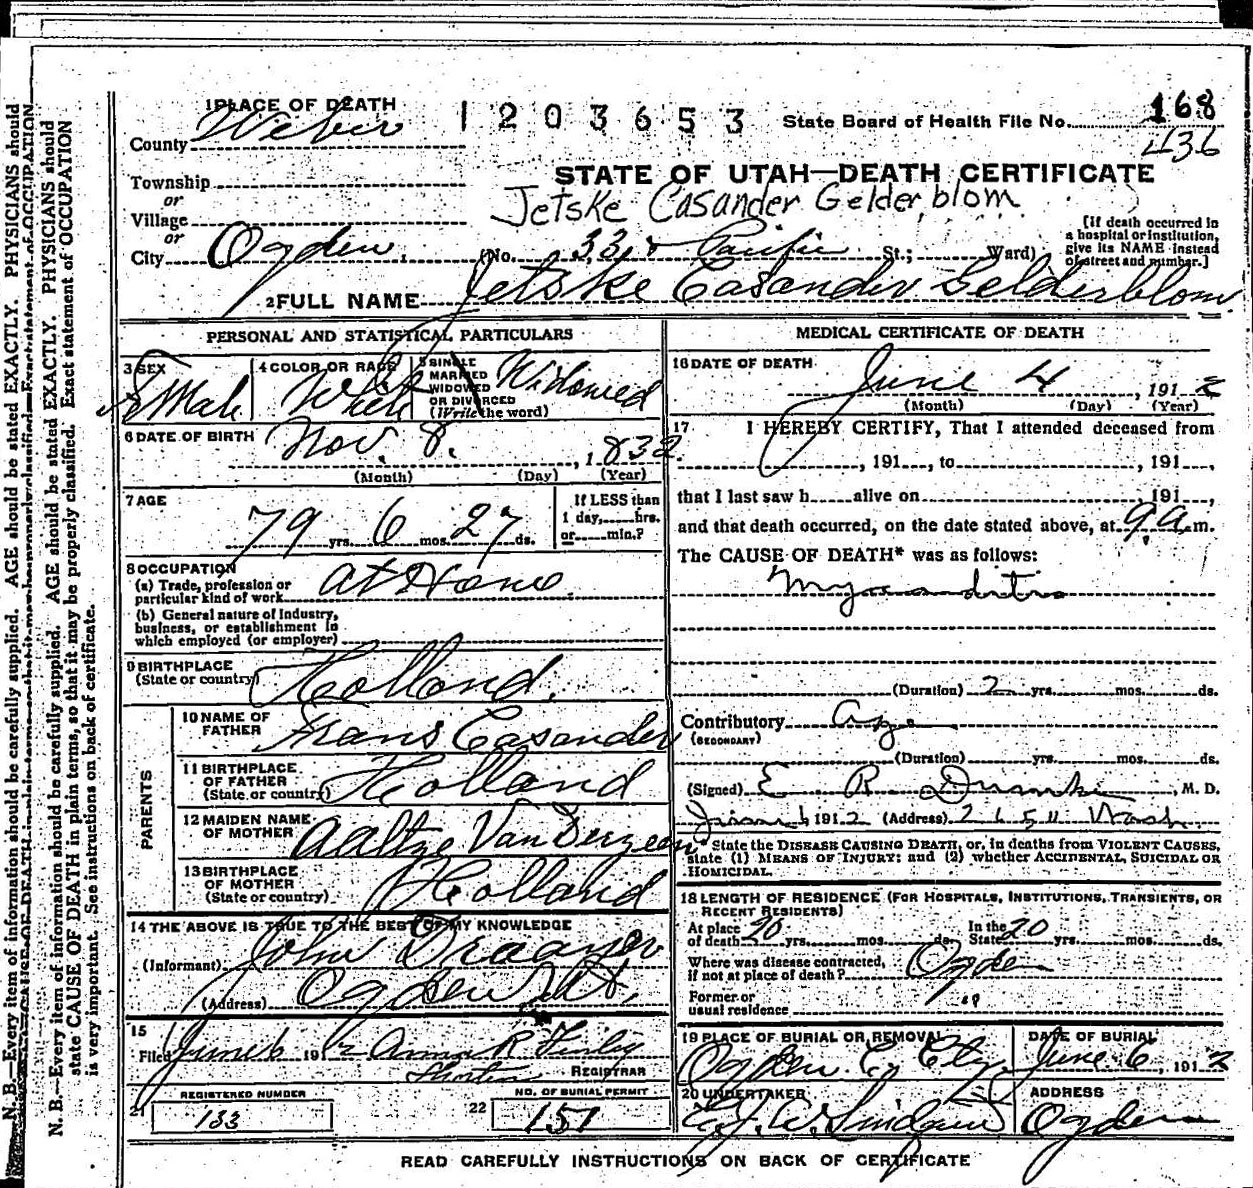 1 PLACE OF DEATH
1203653
State Board of Health File No. 168
436
County Weber
STATE OF UTAH—DEATH CERTIFICATE
Township
or
Jetske Casander Gelderblom
Village
or
City Ogden. (No. Pacific St.; Ward)
[If death occurred in
a hospital or institution,
give its NAME instead
of street and number.]
2 FULL NAME Jetske Casander Gelderblom
PERSONAL AND STATISTICAL PARTICULARS
3 SEX
4 COLOR OR RACE White
5 SINGLE
MARRIED
WIDOWED
OR DIVORCED
(Write the word)
Widowed
6 DATE OF BIRTH Nov. 8. , 1832.
(Month) (Day) (Year)
7 AGE
79 yrs. 6 mos. 27 ds.
If LESS than
1 day, hrs.
or min.?
8 OCCUPATION
(a) Trade, profession or
particular kind of work at Home
(b) General nature of Industry,
business, or establishment in
which employed (or employer)
9 BIRTHPLACE
(State or country) Holland.
PARENTS
10 NAME OF
FATHER Frans Casander
11 BIRTHPLACE
OF FATHER
(State or country) Holland
12 MAIDEN NAME
OF MOTHER Aaltze Van Derzeen
13 BIRTHPLACE
OF MOTHER
(State or country) Holland
14 THE ABOVE IS TRUE TO THE BEST OF MY KNOWLEDGE
(Informant) John Draayer
(Address) Ogden Ut.
15
Filed June 6 1912 Anna R
REGISTRAR
REGISTERED NUMBER
21 133
NO. OF BURIAL PERMIT
22 151
MEDICAL CERTIFICATE OF DEATH
16 DATE OF DEATH
June 4 , 1912
(Month) (Day) (Year)
17 I HEREBY CERTIFY, That I attended deceased from
, 191 , to , 191 ,
that I last saw h alive on , 191 ,
and that death occurred, on the date stated above, at 9 a.m.
The CAUSE OF DEATH* was as follows:
Myocarditis
(Duration) 2 yrs. mos. ds.
Contributory Age
(SECONDARY)
(Duration) yrs. mos. ds.
(Signed) E. R. , M. D.
June 6 1912 (Address) 2651 Wash.
*State the DISEASE CAUSING DEATH, or, in deaths from VIOLENT CAUSES,
state (1) MEANS OF INJURY; and (2) whether ACCIDENTAL, SUICIDAL OR
HOMICIDAL.
18 LENGTH OF RESIDENCE (FOR HOSPITALS, INSTITUTIONS, TRANSIENTS, OR
RECENT RESIDENTS)
At place
of death 20 yrs. mos. ds. In the
State 20 yrs. mos. ds.
Where was disease contracted,
if not at place of death? Ogden
Former or
usual residence "
19 PLACE OF BURIAL OR REMOVAL
Ogden C
DATE OF BURIAL
June 6 , 1912
20 UNDERTAKER
ADDRESS
Ogden
READ CAREFULLY INSTRUCTIONS ON BACK OF CERTIFICATE
N. B.—Every item of information should be carefully supplied. AGE should be stated EXACTLY. PHYSICIANS should
N. B.—Every item of information should be carefully supplied. AGE should be stated EXACTLY. PHYSICIANS should
state CAUSE OF DEATH in plain terms, so that it may be properly classified. Exact statement of OCCUPATION
is very important. See instructions on back of certificate.